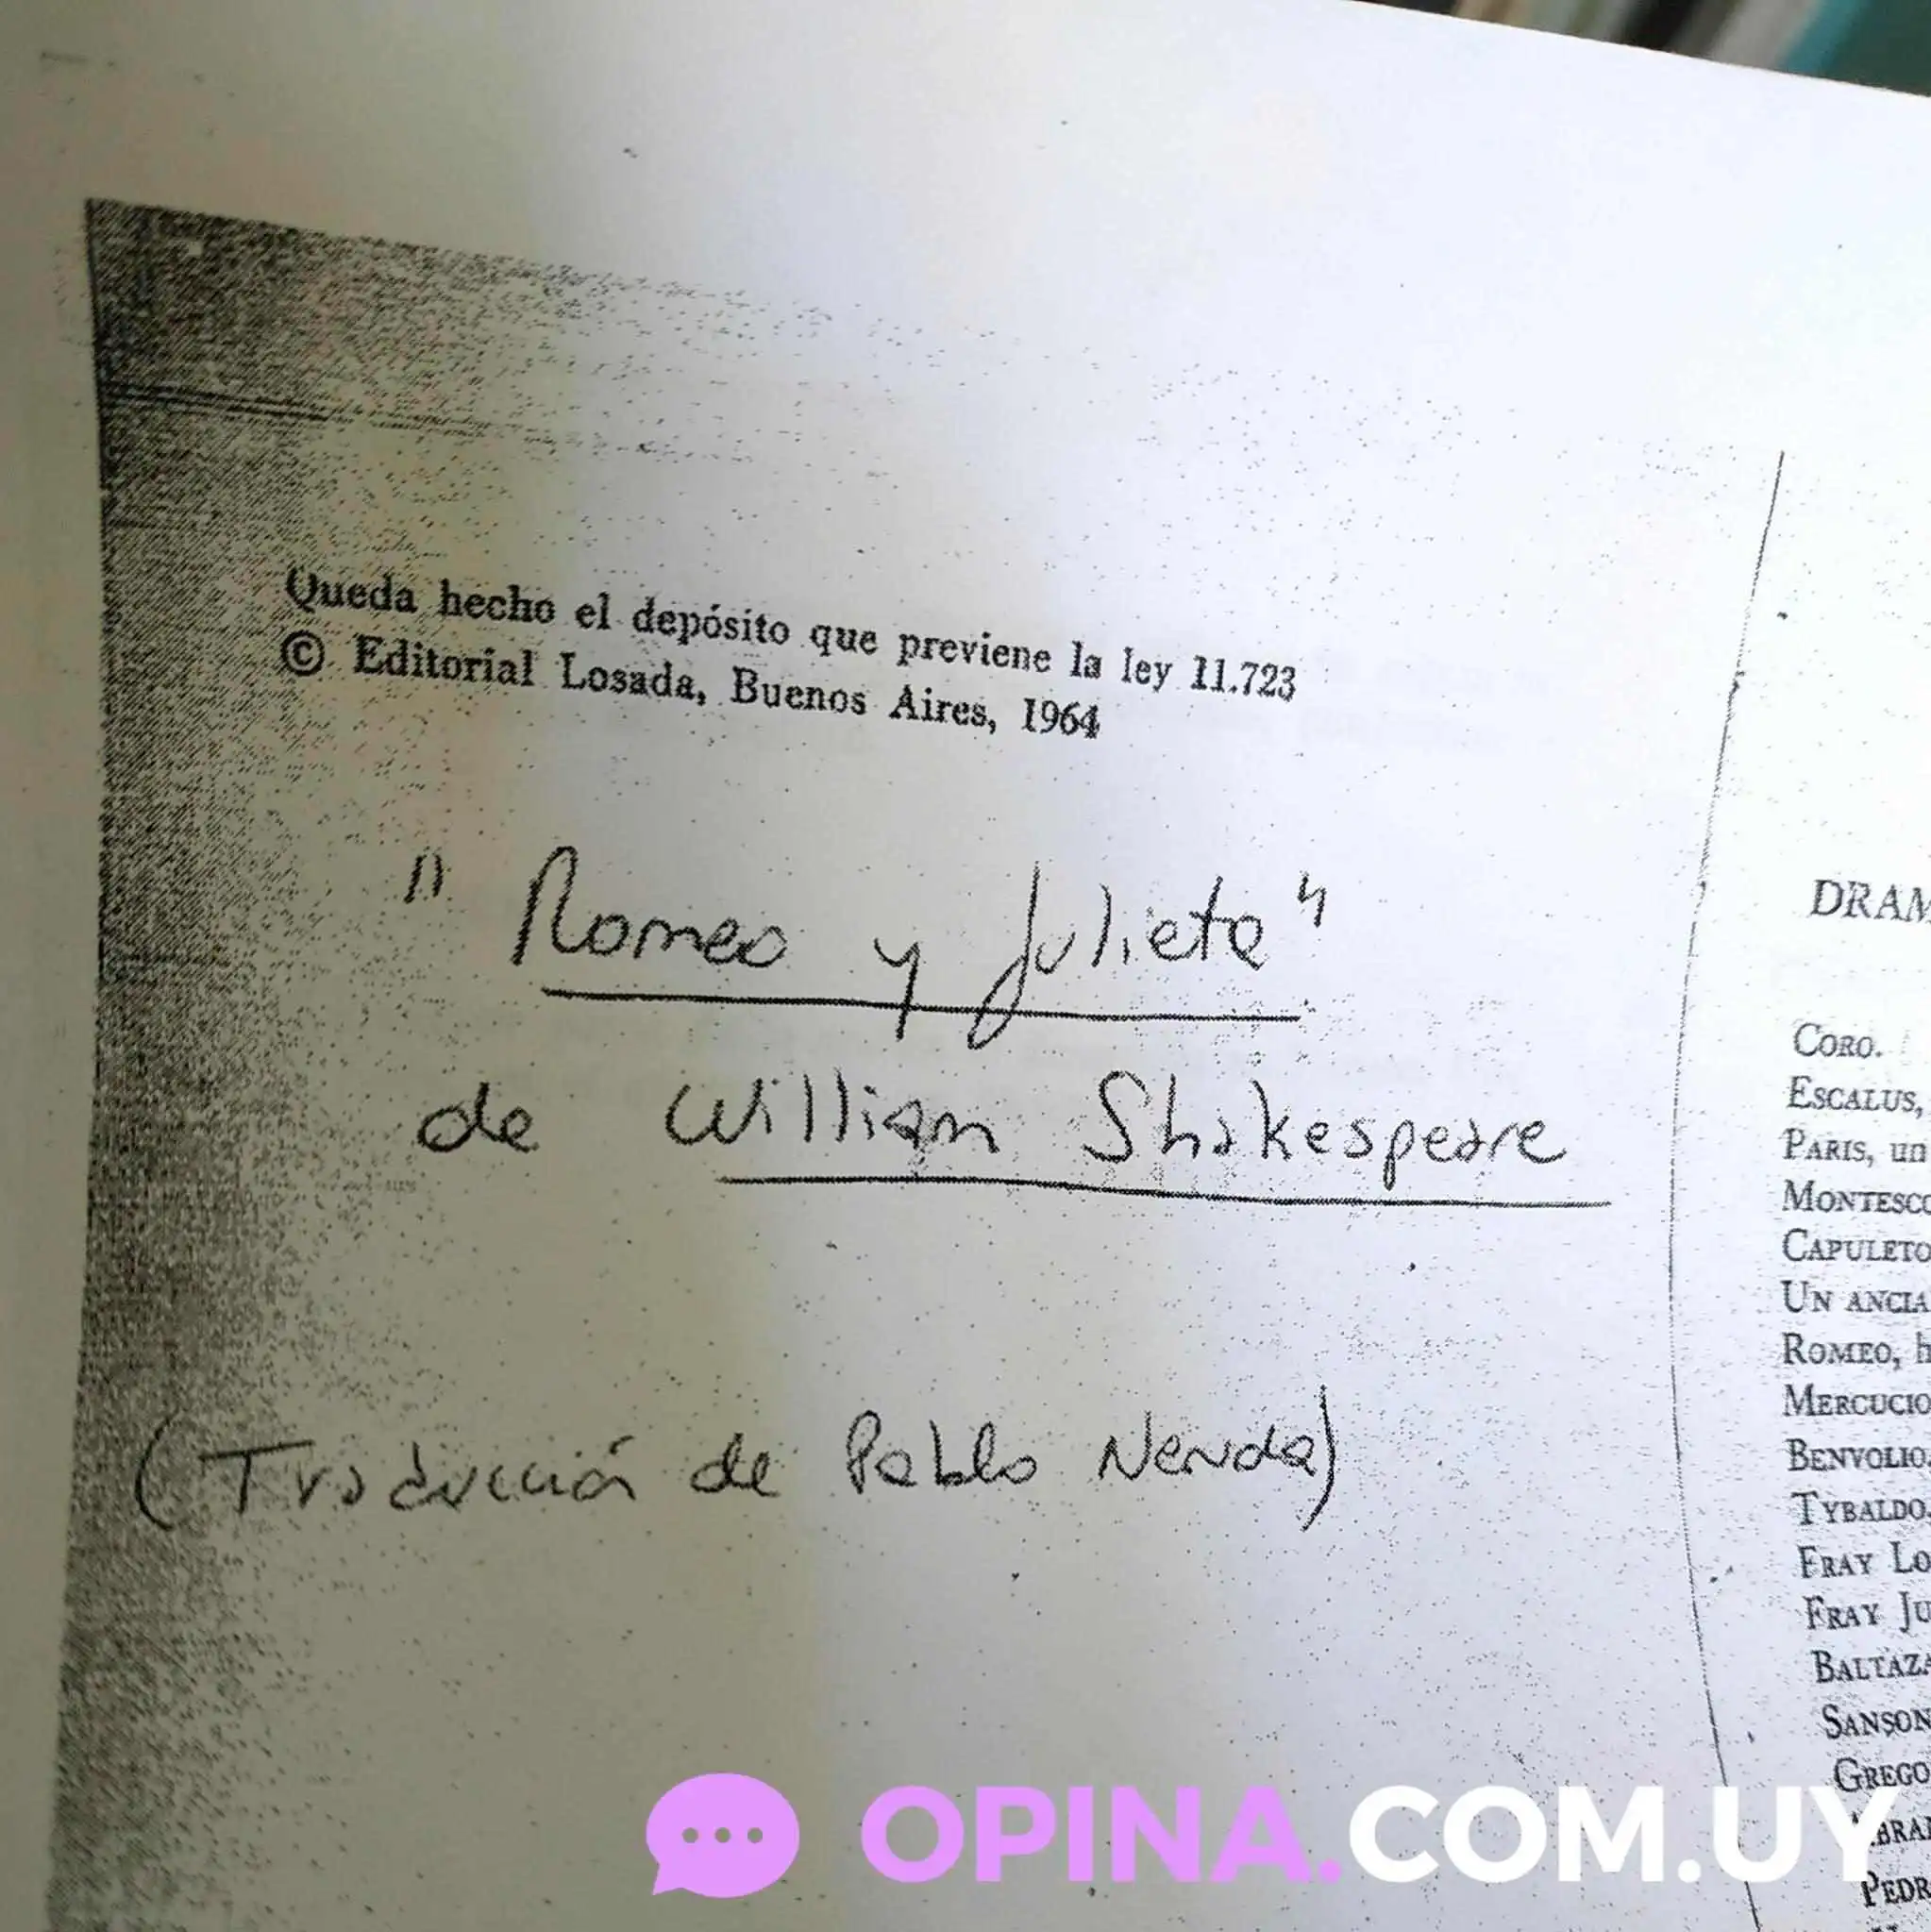 Queda hecho el depósito que previene la ley 11.723
© Editorial Losada, Buenos Aires, 1964
"Romeo y Julieta"
de William Shakespeare
(Traducción de Pablo Neruda)
DRAM
CORO.
ESCALUS,
PARIS, un
MONTESCO
CAPULETO
UN ANCIA
ROMEO, h
MERCUCIO
BENVOLIO,
TYBALDO,
FRAY LO
FRAY JU
BALTAZA
SANSON
GREGO
ABRA
PEDR
OPINA.COM.UY